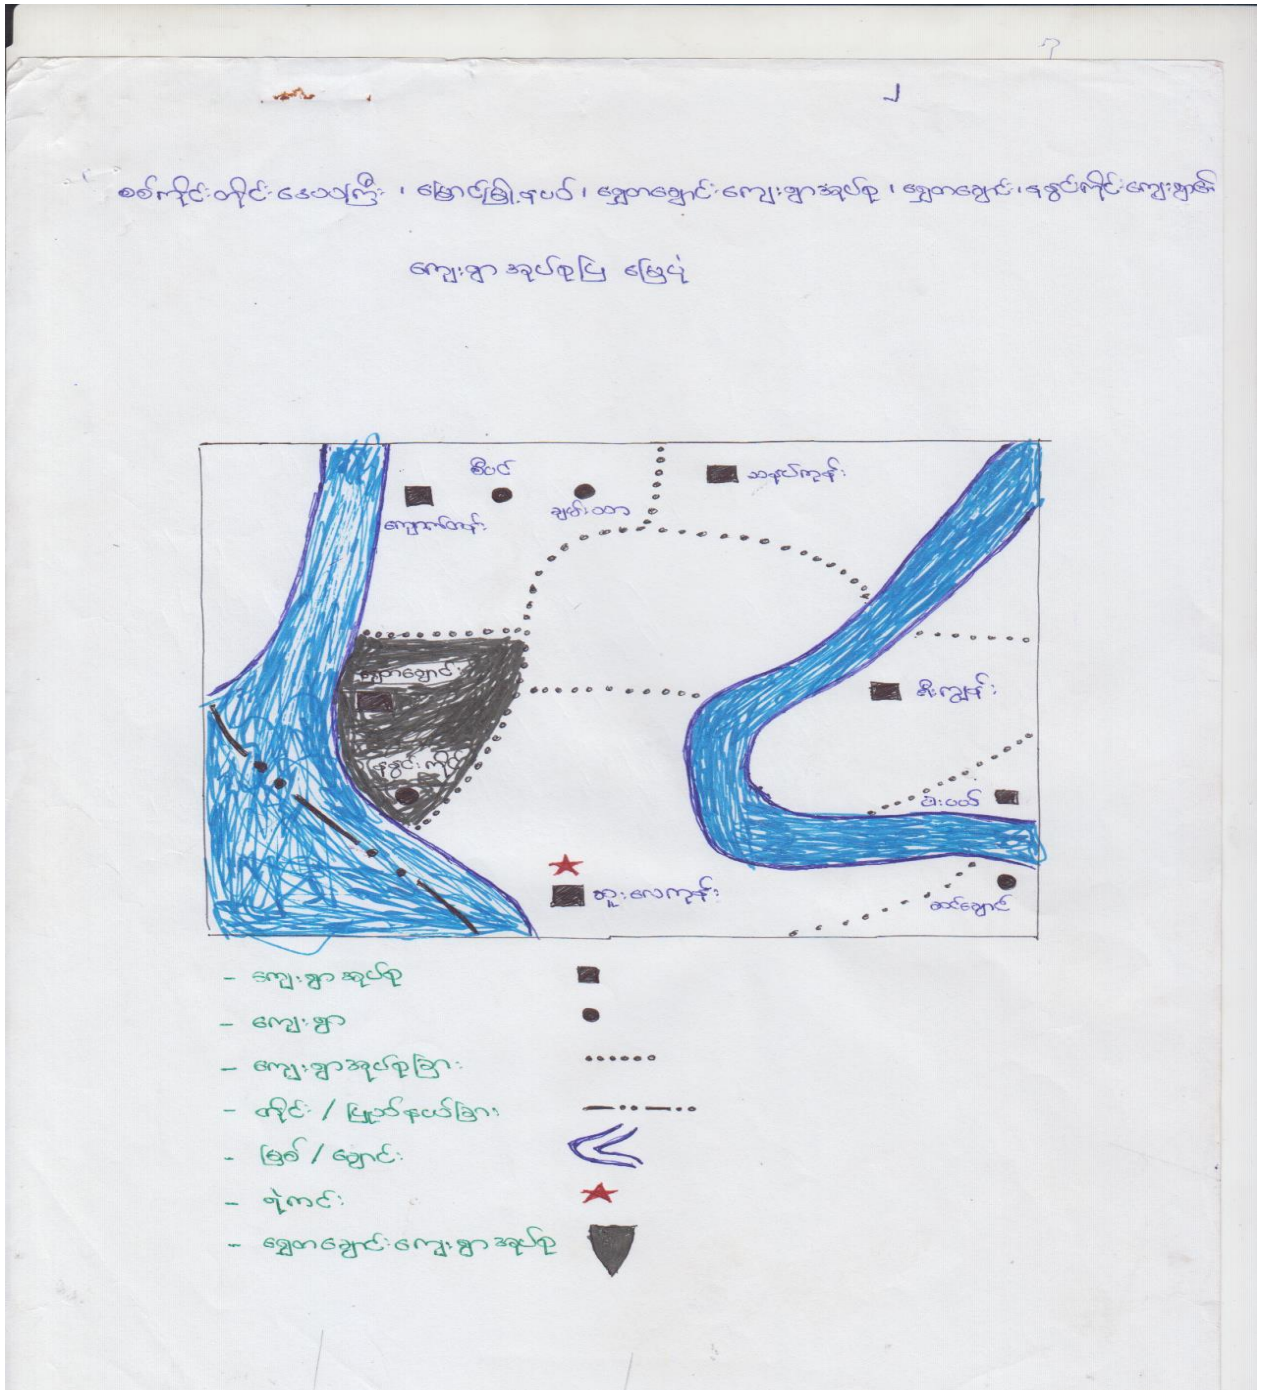 ၂
စစ်ကိုင်းတိုင်းဒေသကြီး ၊ မြောင်မြို့နယ် ၊ ရွှေတချောင်းကျေးရွာအုပ်စု ၊ ရွှေတချောင်း ၊ နနွင်းကိုင်းကျေးရွာ၏
ကျေးရွာအုပ်စုပြ မြေပုံ
စီပင်
ဆနပ်ကုန်း
ချမ်းသာ
ကျောက်တန်း
ရွှေတချောင်း
စီးကျွန်း
နနွင်းကိုင်း
ဆူးလေကုန်း
ဆင်ချောင်း
- ကျေးရွာအုပ်စု
- ကျေးရွာ
- ကျေးရွာအုပ်စုခြား
- တိုင်း / ပြည်နယ်ခြား
- မြစ် / ချောင်း
- ရဲကင်း
- ရွှေတချောင်းကျေးရွာအုပ်စု